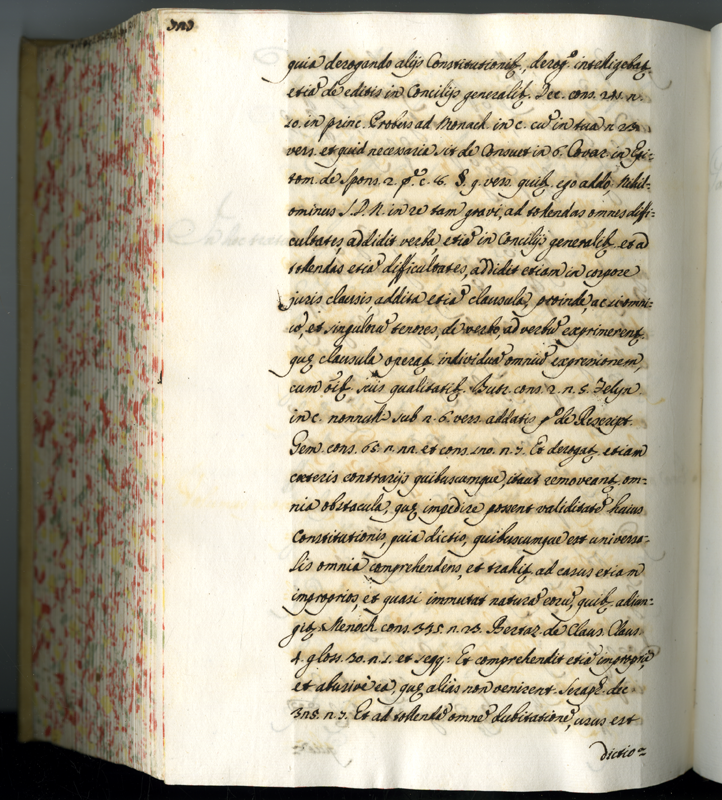 323
quia derogando alijs Constitutionib, derog.e intelligebat
etiã de editis in Concilijs generalib. Dec. cons. 241. n.
10. in princ. Probus ad Monach. in c. cũ in tua n. 23.
vers. et quid necessaria sit de Consuet. in 6. Covar. in Epi-
tom. de Spons. 2. p.e c. 6. §. 9. vers. quib, ego addo, Nihil-
ominus S. D. N. in re tam gravi, ad tollendas omnes diffi-
cultates, addidit verba etiã in Concilijs generalib, et ad
tollendas etiã difficultates, addidit etiam in corpore
juris clausis addita etiã clausula, perinde, ac si omni-
ũ, et singulorũ tenores, de verbo, ad verbũ exprimerent,
quę clausula operat individuã omniũ expressionem,
cum oĩb, suis qualitatib. Butr. cons. 2. n. 5. Felyn.
in c. nonnulli sub n. 6. vers. addatis p.o de Rescript.
Gem. cons. 65. n. 11. et cons. 120. n. 7. Et derogat etiam
cæteris contrarijs quibuscumque, itaut removeant om-
nia obstacula, quę impedire possent validitatẽ huius
Constitutionis, quia dictio, quibuscumque est universa-
lis omnia comprehendens, et trahit ad casus etiam
improprios, et quasi immutat naturã eorũ, quib, adiun-
git, Menoch. cons. 335. n. 23. Bertaz. de Claus. Claus.
4. gloss. 30. n. 1. et seqq. Et comprehendit etiã impropriè
et abusivè ea, quę aliàs non venirent. Seraph. dec.
325. n. 7. Et ad tollendã omnẽ dubitationẽ, usus est
dictio=